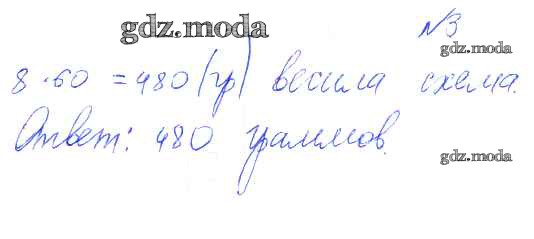 gdz.moda
№3
gdz.moda
8 · 60 = 480 (гр) весила схема.
Ответ: 480 граммов.
gdz.moda